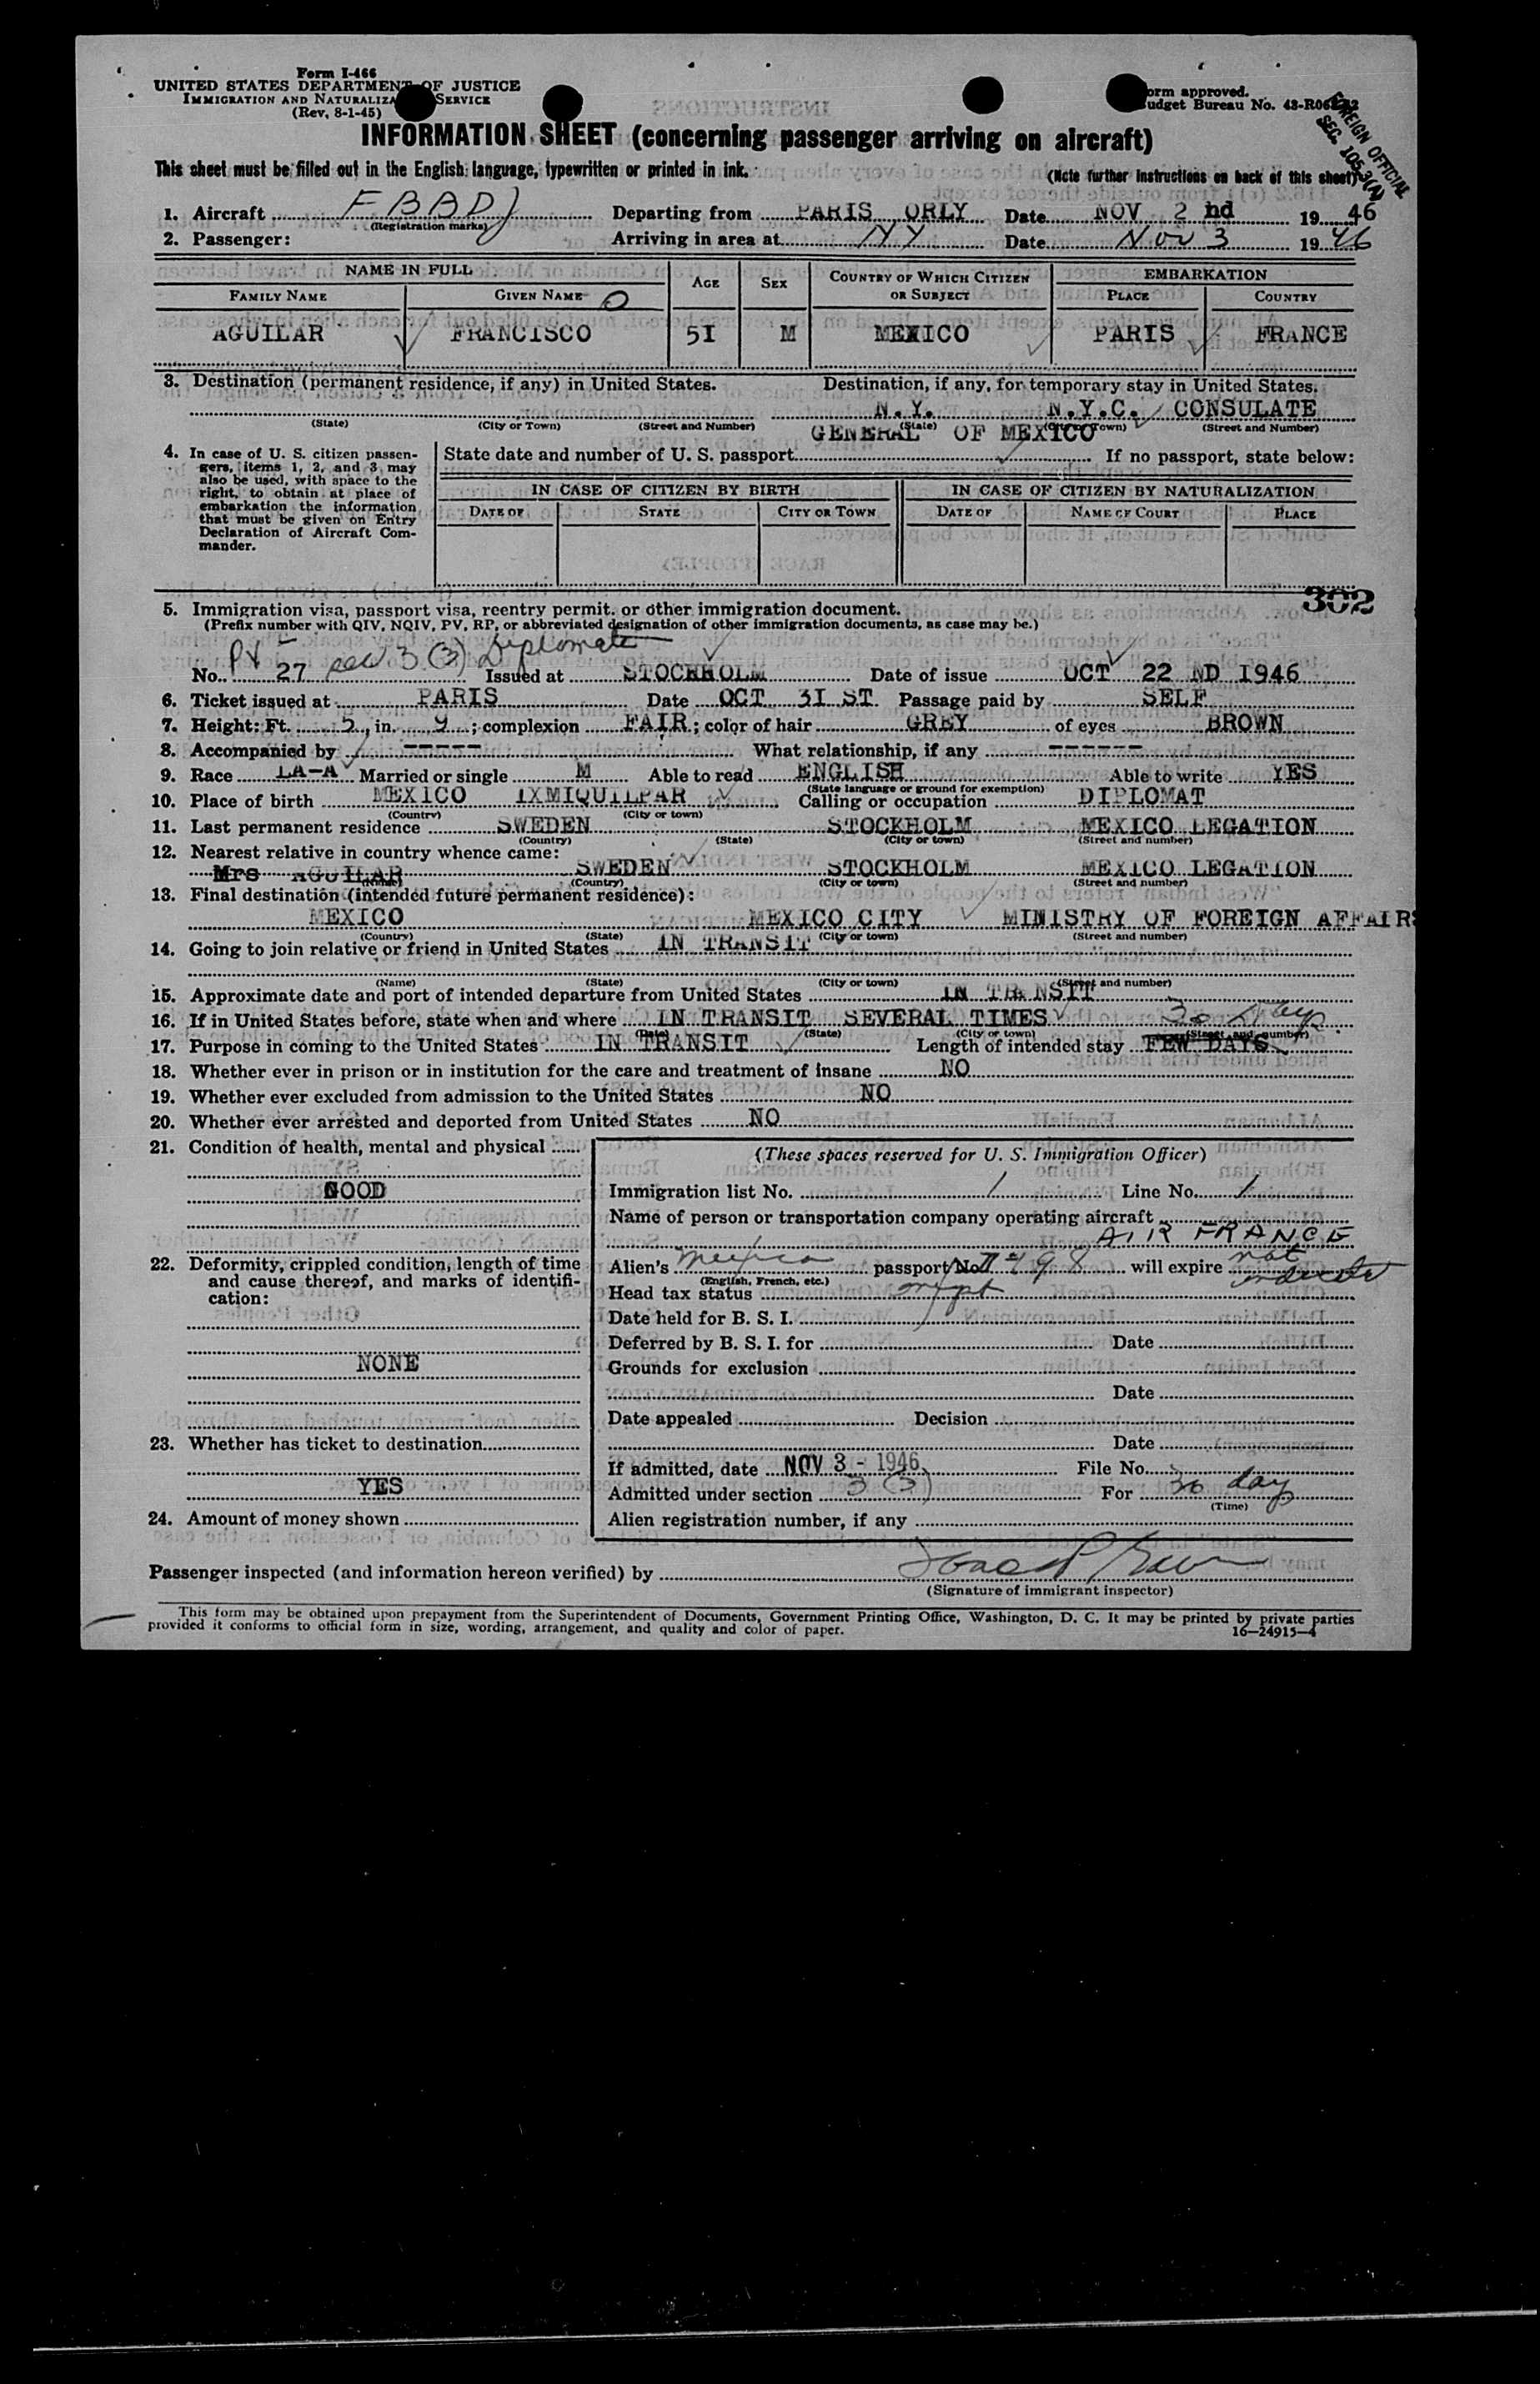 Form I-466
UNITED STATES DEPARTMENT OF JUSTICE
IMMIGRATION AND NATURALIZA SERVICE
(Rev. 8-1-45)
orm approved.
udget Bureau No. 43-R06
FOREIGN OFFICIAL
SEC. 105.3(A)
INFORMATION SHEET (concerning passenger arriving on aircraft)
This sheet must be filled out in the English language, typewritten or printed in ink.
(Note further instructions on back of this sheet)
1. Aircraft F B B D J Departing from PARIS ORLY Date NOV 2 nd 19 46
(Registration marks)
2. Passenger: Arriving in area at NY Date Nov 3 19 46
NAME IN FULL AGE SEX COUNTRY OF WHICH CITIZEN OR SUBJECT EMBARKATION
FAMILY NAME GIVEN NAME PLACE COUNTRY
AGUILAR FRANCISCO 51 M MEXICO PARIS FRANCE
3. Destination (permanent residence, if any) in United States. Destination, if any, for temporary stay in United States.
N.Y. N.Y.C. CONSULATE
(State) (City or Town) (Street and Number) (State) (City or Town) (Street and Number)
GENERAL OF MEXICO
4. In case of U. S. citizen passengers, items 1, 2, and 3 may also be used, with space to the right, to obtain at place of embarkation the information that must be given on Entry Declaration of Aircraft Commander.
State date and number of U. S. passport If no passport, state below:
IN CASE OF CITIZEN BY BIRTH IN CASE OF CITIZEN BY NATURALIZATION
DATE OF STATE CITY OR TOWN DATE OF NAME OF COURT PLACE
302
5. Immigration visa, passport visa, reentry permit, or other immigration document.
(Prefix number with QIV, NQIV, PV, RP, or abbreviated designation of other immigration documents, as case may be.)
No. PV 27 sec 3 (3) Diplomate Issued at STOCKHOLM Date of issue OCT 22 ND 1946
6. Ticket issued at PARIS Date OCT 31 ST Passage paid by SELF
7. Height: Ft. 5, in. 9; complexion FAIR; color of hair GREY of eyes BROWN
8. Accompanied by ----- What relationship, if any ------
9. Race LA-A Married or single M Able to read ENGLISH Able to write YES
(State language or ground for exemption)
10. Place of birth MEXICO IXMIQUILPAR Calling or occupation DIPLOMAT
(Country) (City or town)
11. Last permanent residence SWEDEN STOCKHOLM MEXICO LEGATION
(Country) (State) (City or town) (Street and number)
12. Nearest relative in country whence came:
Mrs AGUILAR SWEDEN STOCKHOLM MEXICO LEGATION
(Name) (Country) (City or town) (Street and number)
13. Final destination (intended future permanent residence):
MEXICO MEXICO CITY MINISTRY OF FOREIGN AFFAIRS
(Country) (State) (City or town) (Street and number)
14. Going to join relative or friend in United States IN TRANSIT
(Name) (State) (City or town) (Street and number)
15. Approximate date and port of intended departure from United States IN TRANSIT
16. If in United States before, state when and where IN TRANSIT SEVERAL TIMES 30 days
(Date) (State) (City or town) (Street and number)
17. Purpose in coming to the United States IN TRANSIT Length of intended stay FEW DAYS
18. Whether ever in prison or in institution for the care and treatment of insane NO
19. Whether ever excluded from admission to the United States NO
20. Whether ever arrested and deported from United States NO
21. Condition of health, mental and physical
GOOD
22. Deformity, crippled condition, length of time and cause thereof, and marks of identification:
NONE
23. Whether has ticket to destination
YES
24. Amount of money shown
(These spaces reserved for U. S. Immigration Officer)
Immigration list No. 1 Line No. 1
Name of person or transportation company operating aircraft
AIR FRANCE
Alien's Mexico passport No. 498 will expire not
(English, French, etc.)
Head tax status
Date held for B. S. I.
Deferred by B. S. I. for Date
Grounds for exclusion
Date
Date appealed Decision
Date
If admitted, date NOV 3 - 1946 File No.
Admitted under section 3 (3) For 30 day
(Time)
Alien registration number, if any
Passenger inspected (and information hereon verified) by
(Signature of immigrant inspector)
This form may be obtained upon prepayment from the Superintendent of Documents, Government Printing Office, Washington, D. C. It may be printed by private parties
provided it conforms to official form in size, wording, arrangement, and quality and color of paper.
16—24915-4